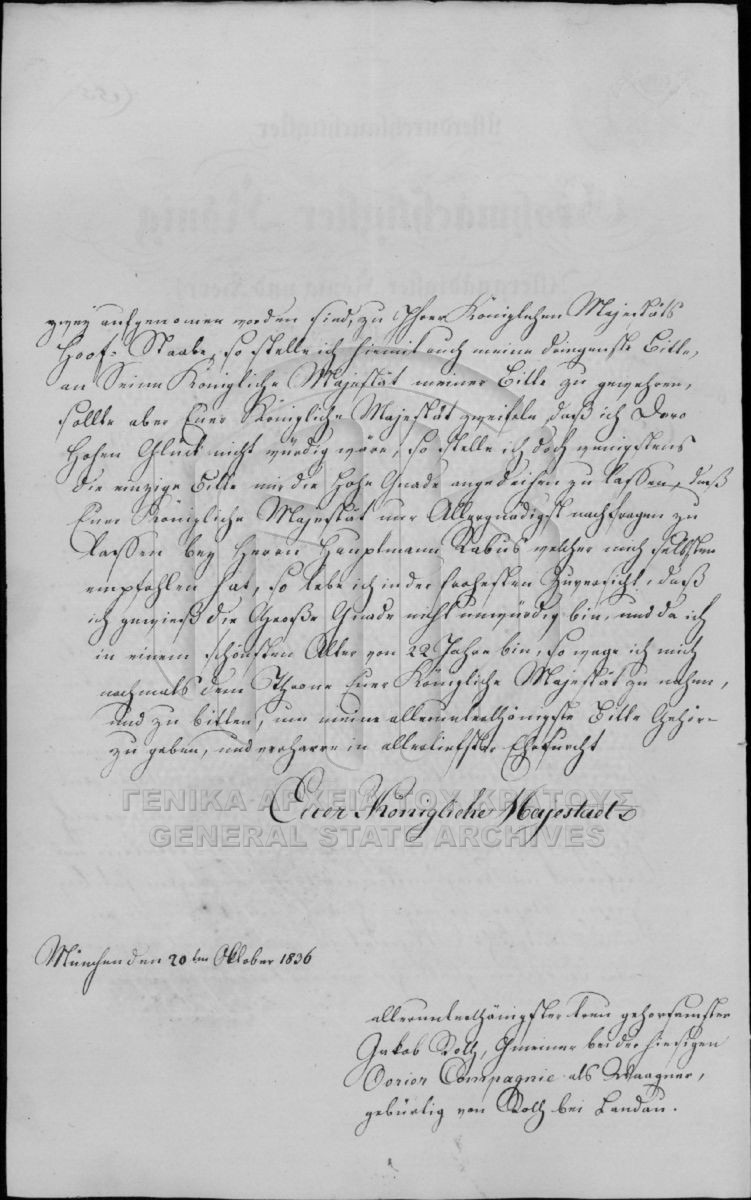 zwey aufgenomen worden sind, zu Ihrer Königlichen Majestäts
Hoof- Staabe, so stelle ich hiemit auch meine dringenste Bitte,
an Seine Königliche Majestät meiner Bitte zu gewehren,
sollte aber Euer Königliche Majestät zweifeln daß ich Dero
Hohen Glück nicht würdig wäre, so stelle ich doch wenigstens
die einzige Bitte mir die Hohe Gnade angedeihen zu lassen, daß
Euer Königliche Majestät nur Allergnädigst nachfragen zu
lassen bey Herrn Hauptmann Rabus welcher mich selbsten
empfohlen hat, so lebe ich in der frohesten Zuversicht, daß
ich gewieß die Große Gnade nicht unwürdig bin, und da ich
in einem schönsten Alter von 22 Jahre bin, so wage ich mich
nochmals dem Throne Euer Königliche Majestät zu nahen,
und zu bitten, um meine allerunterthänigste Bitte Gehör-
zu geben, und verharre in allertiefster Ehrfurcht
Euer Königliche Majestadt
ΓΕΝΙΚΑ ΑΡΧΕΙΑ ΤΟΥ ΚΡΑΤΟΥΣ
GENERAL STATE ARCHIVES
München den 20ten Oktober 1836
allerunterthänigster treu gehorsamster
Jakob Roth, Gmeiner bei der hiesigen
Ovrier Compagnie als Waagner,
gebürtig von Roth bei Landau.